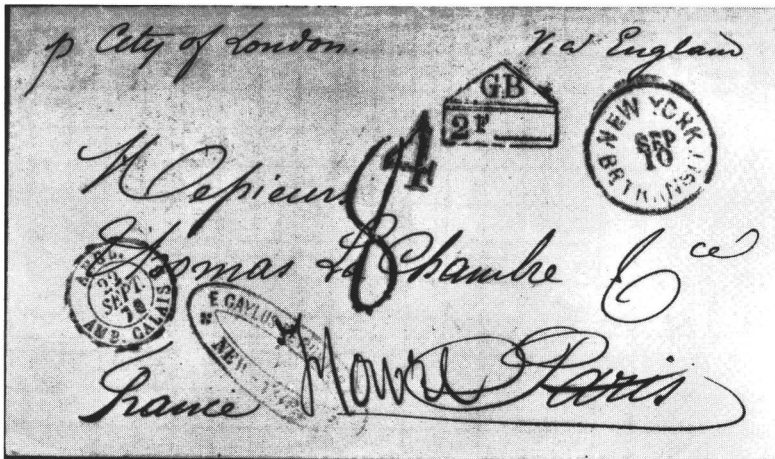 p City of London.
Via England
GB
2F
NEW YORK
SEP
10
BR TRANSIT
Messieurs
8
4
Thomas La Chambre & Cie
ANGL.
22
SEPT.
AMB. CALAIS
E CAYLUS
NEW
Paris
France